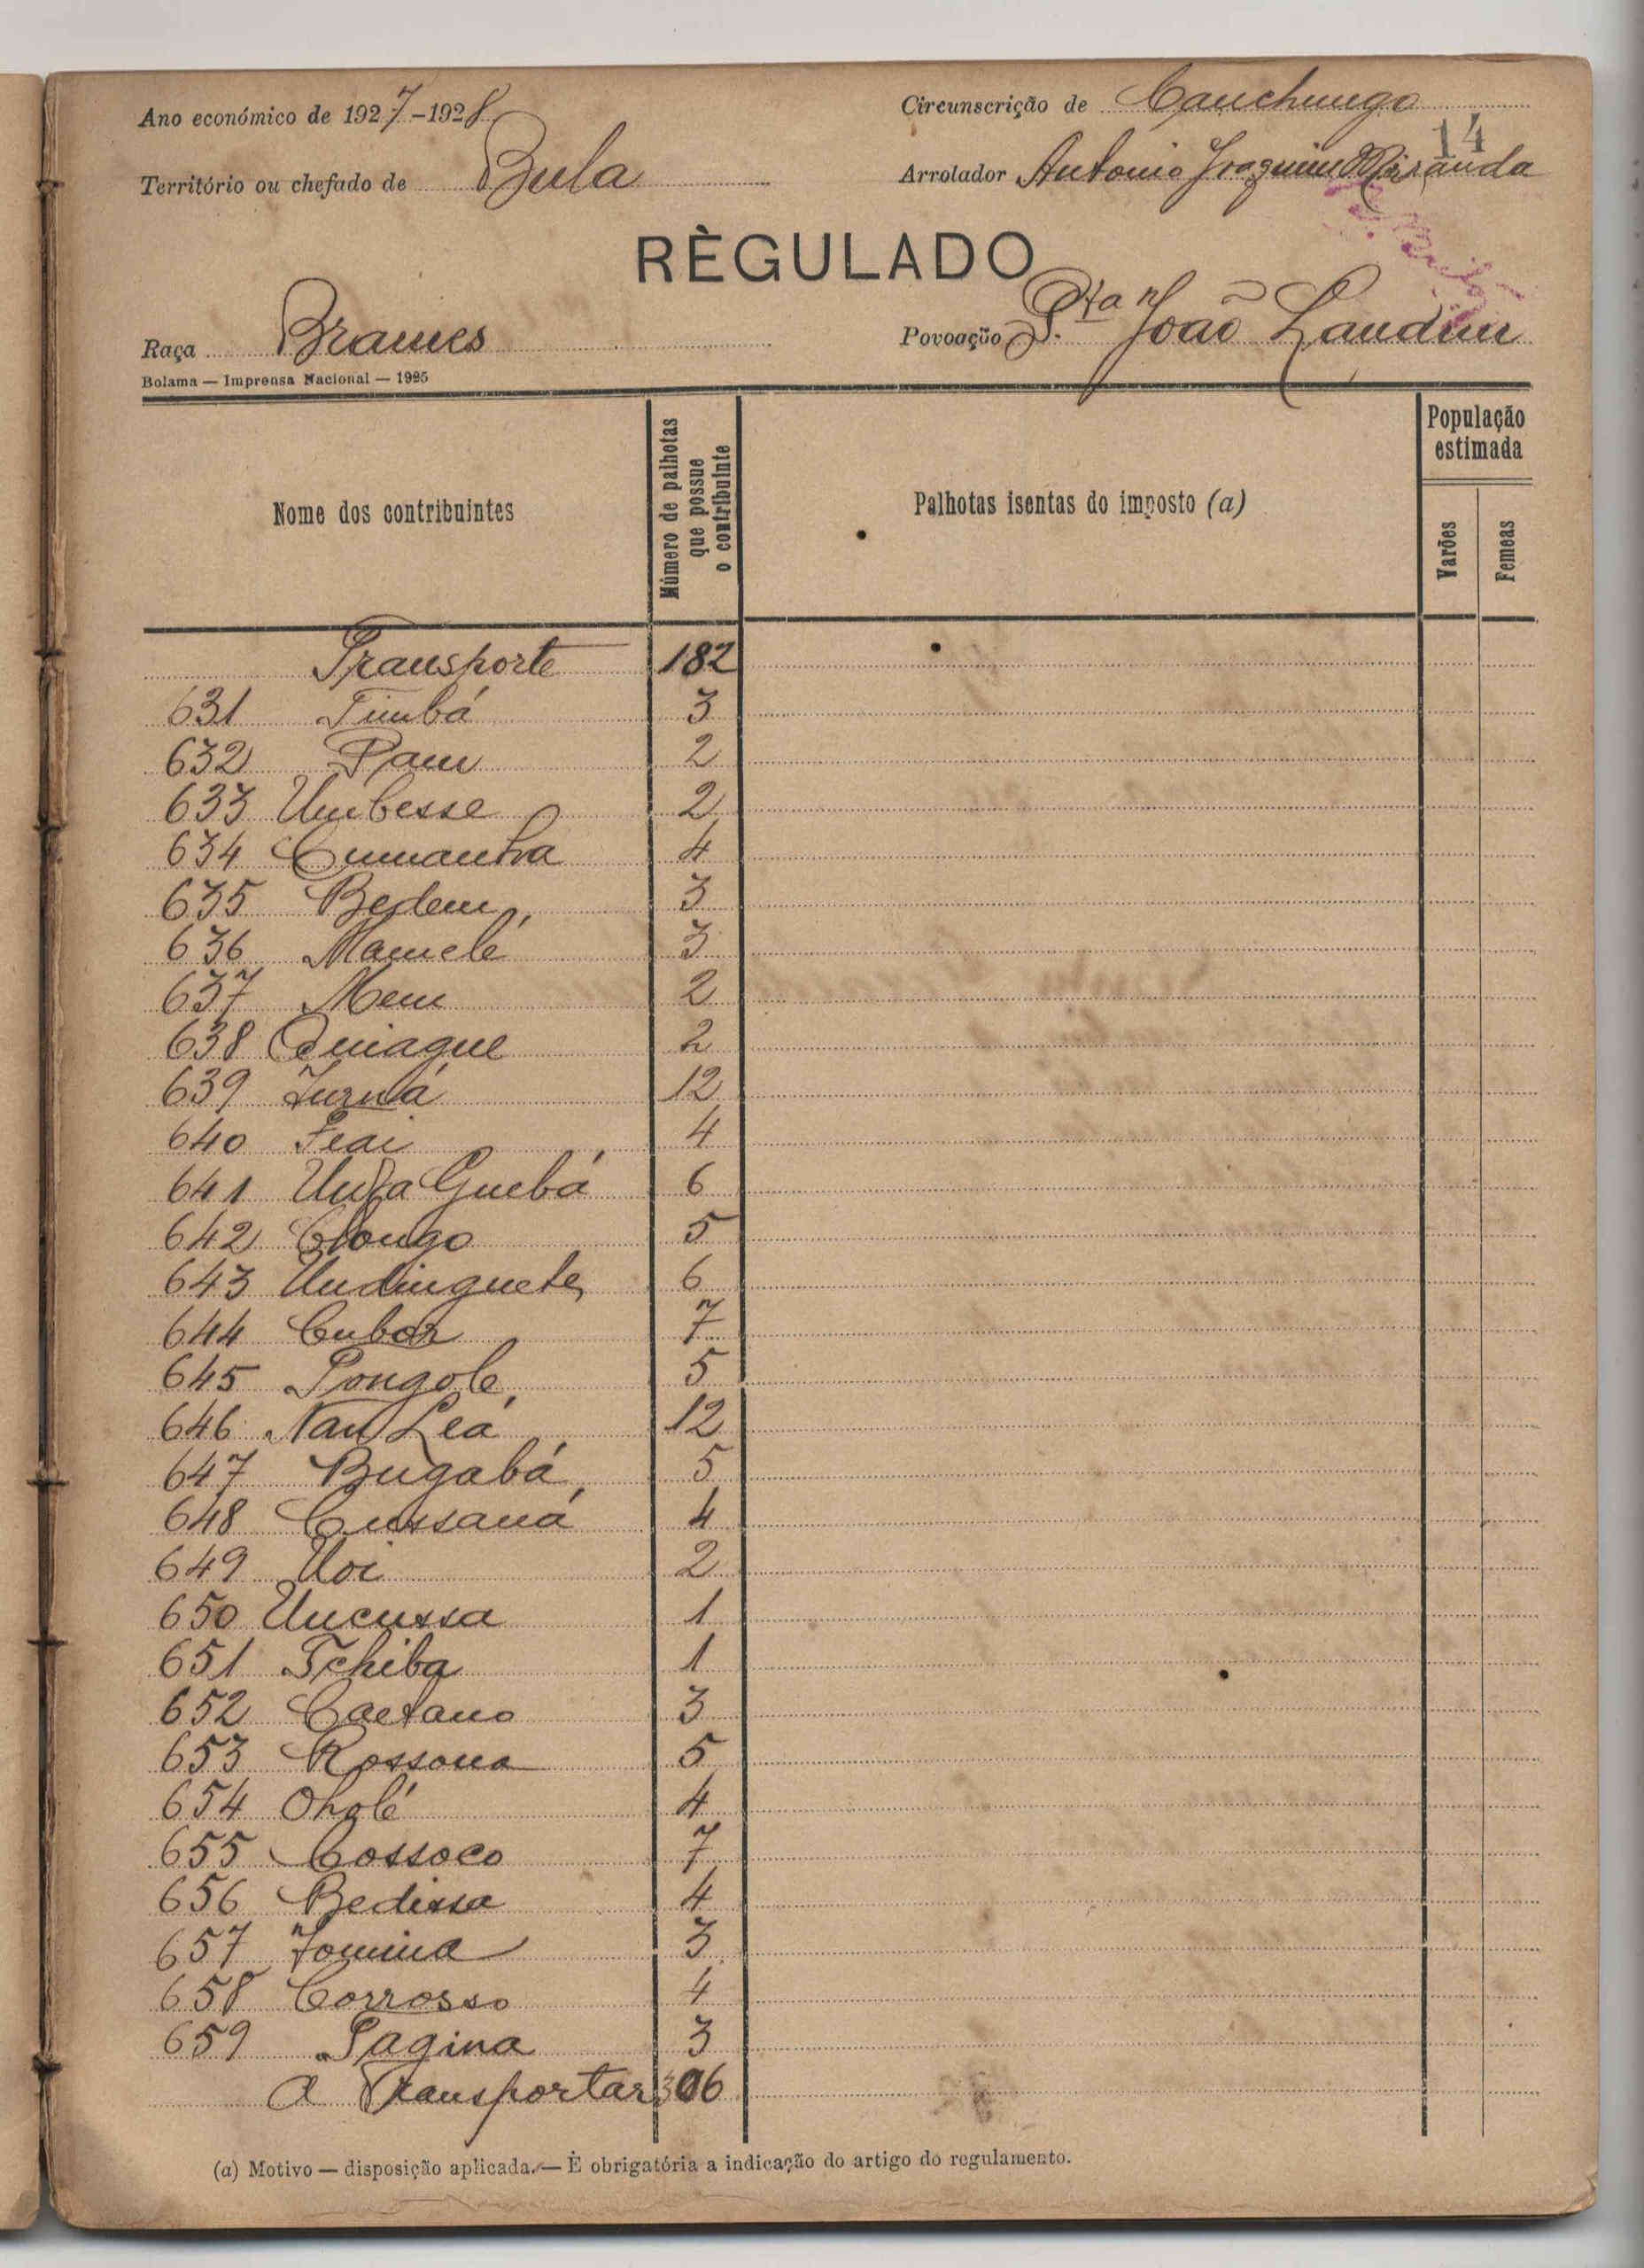 Ano económico de 1927-1928
Circunscrição de Canchungo
14
Território ou chefado de Bula
Arrolador Antonio Joaquim Miranda
RÈGULADO
Raça Brames
Povoação Pta João Landim
Bolama — Imprensa Nacional — 1925
Nome dos contribuintes
Número de palhotas que possue o contribuinte
Palhotas isentas do imposto (a)
População estimada
Varões
Femeas
Transporte 182
631 Timbá 3
632 Pam 2
633 Umbesse 2
634 Cumanha 4
635 Bedem 3
636 Mamelé 3
637 Mem 2
638 Quiague 2
639 Jurná 12
640 Feai 4
641 Unfa Guebá 6
642 Clongo 5
643 Undinguete 6
644 Cubor 7
645 Pongole 5
646 Nan Leá 12
647 Bugabá 5
648 Cussaná 4
649 Uoi 2
650 Uncussa 1
651 Tchiba 1
652 Caetano 3
653 Rossona 5
654 Oholé 4
655 Cossoco 7
656 Bedissa 4
657 Jomina 3
658 Corrosso 4
659 Pagina 3
A Transportar 306
(a) Motivo — disposição aplicada. — È obrigatória a indicação do artigo do regulamento.